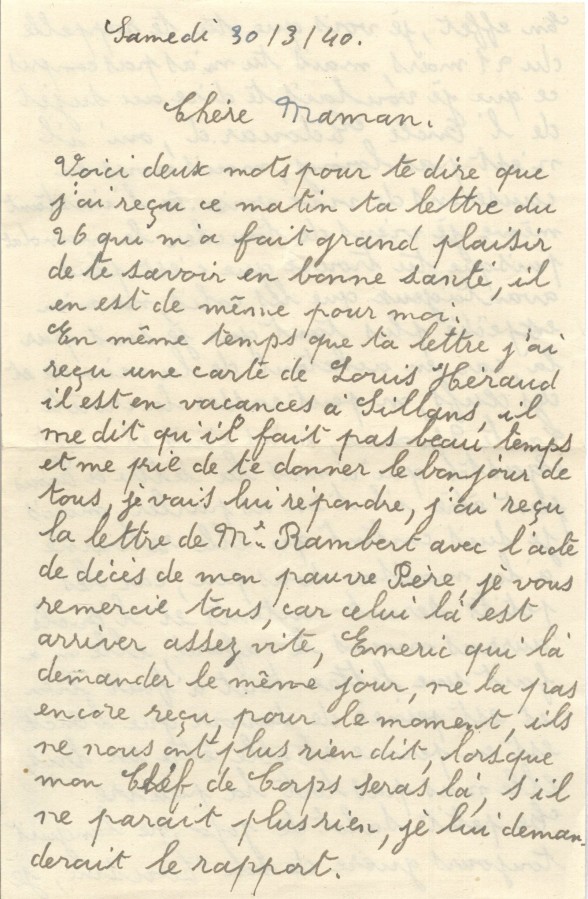 Samedi 30/3/40.
Chère Maman.
Voici deux mots pour te dire que
j'ai reçu ce matin ta lettre du
26 qui m'a fait grand plaisir
de te savoir en bonne santé, il
en est de même pour moi.
En même temps que ta lettre j'ai
reçu une carte de Louis Héraud
il est en vacances à Sillans, il
me dit qu'il fait pas beau temps
et me prie de te donner le bonjour de
tous, je vais lui répondre, j'ai reçu
la lettre de Mr Rambert avec l'acte
de décès de mon pauvre Père, je vous
remercie tous, car celui là est
arriver assez vite, Emeric qui là
demander le même jour, ne la pas
encore reçu, pour le moment, ils
ne nous ont plus rien dit, lorsque
mon Chéf de Corps seras là, s'il
ne parait plus rien, je lui deman-
derait le rapport.